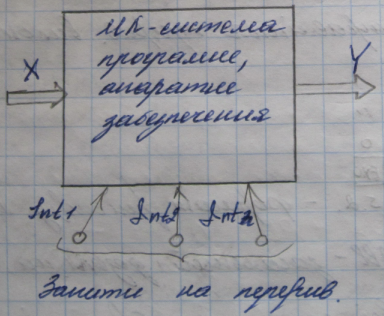 МК-система
програмне,
апаратне
забезпечення
X
Y
Int1
Int2
Intn
Запити на перерив.